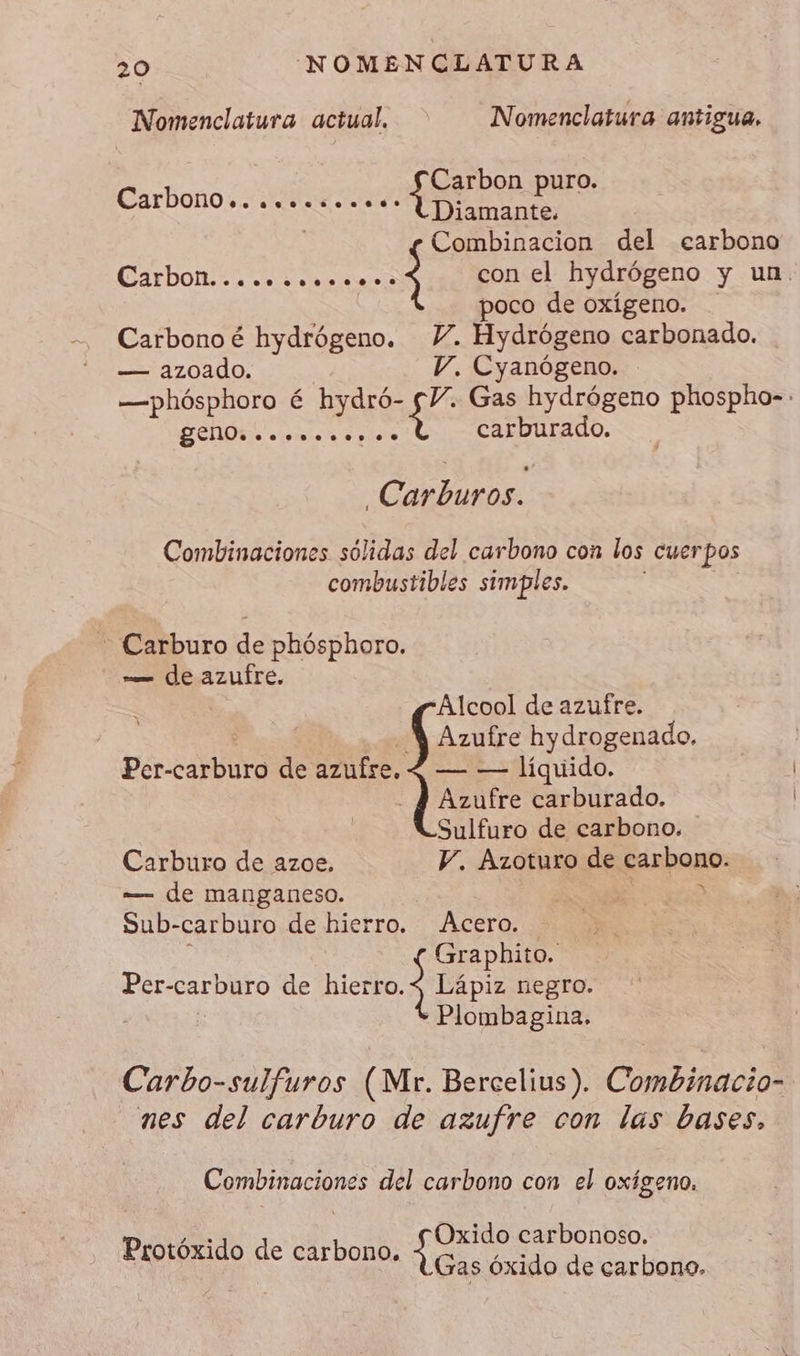 20 NOMENCLATURA
Nomenclatura actual. Nomenclatura antigua.
Carbono............. { Carbon puro.
Diamante.
Carbon.............. { Combinacion del carbono
con el hydrógeno y un
poco de oxígeno.
Carbono é hydrógeno. V. Hydrógeno carbonado.
— azoado. V. Cyanógeno.
—phósphoro é hydró- { V. Gas hydrógeno phospho-
geno............ carburado.
Carburos.
Combinaciones sólidas del carbono con los cuerpos
combustibles simples.
Carburo de phósphoro.
— de azufre.
Per-carburo de azufre. { Alcool de azufre.
Azufre hydrogenado.
— — líquido.
Azufre carburado.
Sulfuro de carbono.
Carburo de azoe. V. Azoturo de carbono.
— de manganeso.
Sub-carburo de hierro. Acero.
Per-carburo de hierro. { Graphito.
Lápiz negro.
Plombagina.
Carbo-sulfuros (Mr. Bercelius). Combinacio-
nes del carburo de azufre con las bases.
Combinaciones del carbono con el oxígeno.
Protóxido de carbono. { Oxido carbonoso.
Gas óxido de carbono.